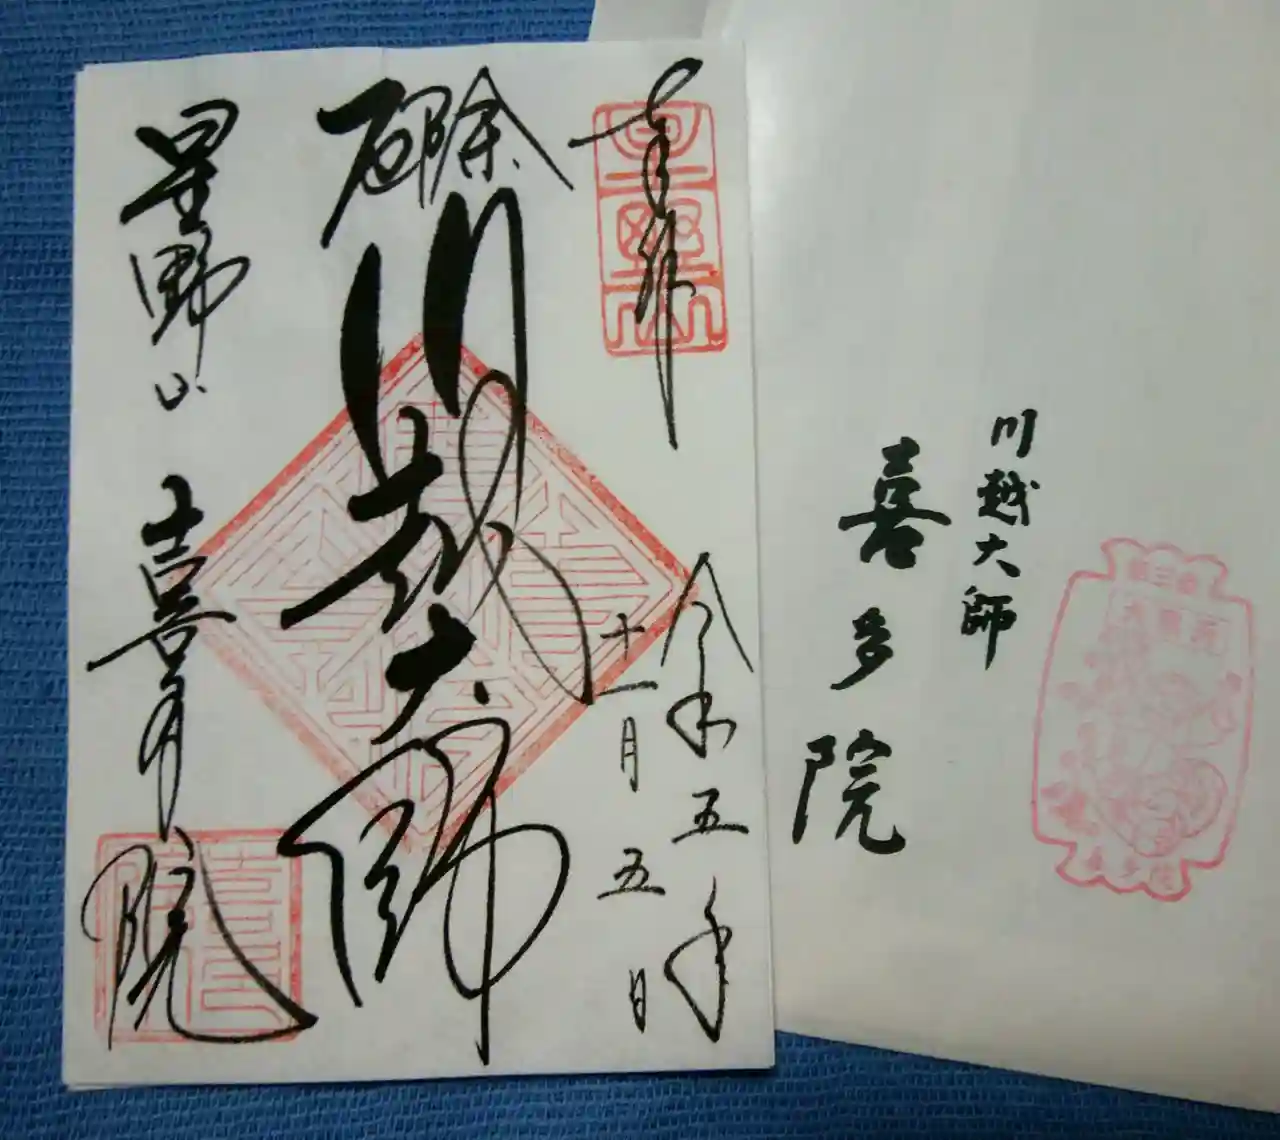 奉拝
令和五年
十一月五日
厄除
川越大師
星野山
喜多院
川越大師
喜多院
星野山
喜多院